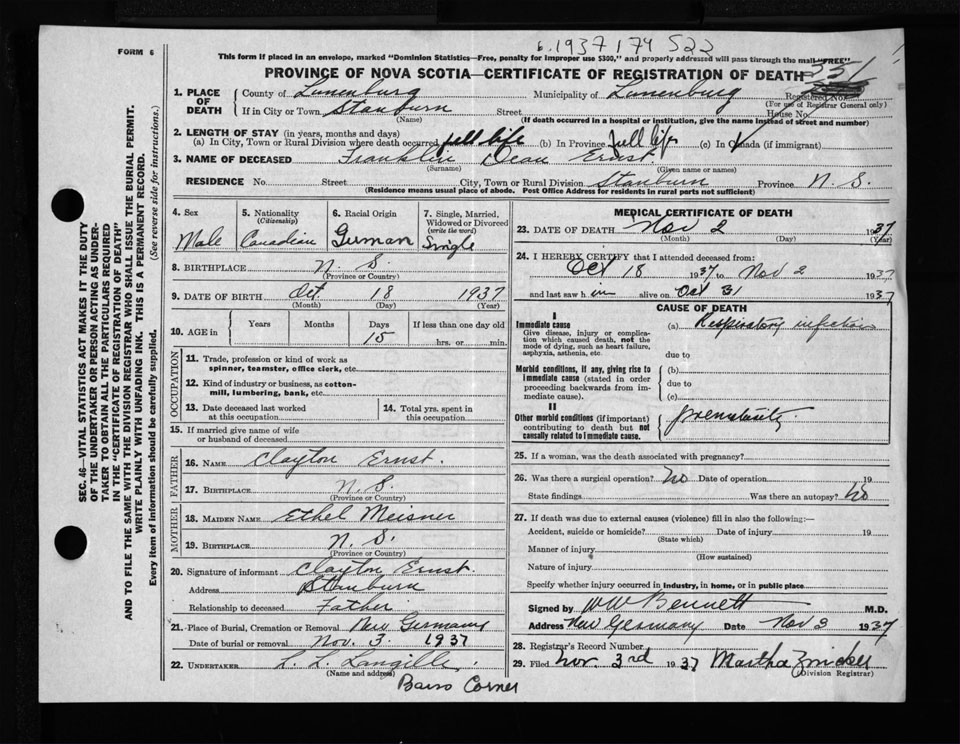 6.1937 174 522
FORM 6
This form if placed in an envelope, marked "Dominion Statistics—Free, penalty for improper use $300," and properly addressed will pass through the mail "FREE"
PROVINCE OF NOVA SCOTIA—CERTIFICATE OF REGISTRATION OF DEATH
1. PLACE OF DEATH County of Lunenburg Municipality of Lunenburg Registered No. 351
(For use of Registrar General only)
If in City or Town Stanburn Street House No.
(Name) (If death occurred in a hospital or institution, give the name instead of street and number)
2. LENGTH OF STAY (in years, months and days)
(a) In City, Town or Rural Division where death occurred full life (b) In Province full life (c) In Canada (if immigrant)
3. NAME OF DECEASED Franklin Dean Ernst
(Surname) (Given name or names)
RESIDENCE No. Street City, Town or Rural Division Stanburn Province N. S.
(Residence means usual place of abode. Post Office Address for residents in rural parts not sufficient)
4. Sex 5. Nationality (Citizenship) 6. Racial Origin 7. Single, Married, Widowed or Divorced (write the word)
Male Canadian German Single
8. BIRTHPLACE N. S.
(Province or Country)
9. DATE OF BIRTH Oct. 18 1937
(Month) (Day) (Year)
10. AGE in Years Months Days If less than one day old
15 hrs. or min.
OCCUPATION
11. Trade, profession or kind of work as spinner, teamster, office clerk, etc.
12. Kind of industry or business, as cotton-mill, lumbering, bank, etc.
13. Date deceased last worked at this occupation
14. Total yrs. spent in this occupation
15. If married give name of wife or husband of deceased
FATHER
16. NAME Clayton Ernst.
17. BIRTHPLACE N. S.
(Province or Country)
MOTHER
18. MAIDEN NAME Ethel Meisner
19. BIRTHPLACE N. S.
(Province or Country)
20. Signature of informant Clayton Ernst.
Address Stanburn
Relationship to deceased Father
21. Place of Burial, Cremation or Removal New Germany
Date of burial or removal Nov. 3 1937
22. UNDERTAKER L. L. Langille
(Name and address)
Barss Corner
MEDICAL CERTIFICATE OF DEATH
23. DATE OF DEATH Nov 2 1937
(Month) (Day) (Year)
24. I HEREBY CERTIFY that I attended deceased from:
Oct 18 1937 to Nov 2 1937
and last saw h im alive on Oct 31 1937
CAUSE OF DEATH
I
Immediate cause
Give disease, injury or complication which caused death, not the mode of dying, such as heart failure, asphyxia, asthenia, etc.
(a) Respiratory infection
due to
Morbid conditions, if any, giving rise to immediate cause (stated in order proceeding backwards from immediate cause).
(b)
due to
(c)
II
Other morbid conditions (if important) contributing to death but not causally related to immediate cause.
prematurity
25. If a woman, was the death associated with pregnancy?
26. Was there a surgical operation? No Date of operation 19
State findings Was there an autopsy? No
27. If death was due to external causes (violence) fill in also the following:—
Accident, suicide or homicide? Date of injury 19
(State which)
Manner of injury
(How sustained)
Nature of injury
Specify whether injury occurred in industry, in home, or in public place
Signed by W W Bennett M.D.
Address New Germany Date Nov 3 1937
28. Registrar's Record Number
29. Filed Nov. 3rd 1937 Martha Zwicker
(Division Registrar)
SEC. 46—VITAL STATISTICS ACT MAKES IT THE DUTY
OF THE UNDERTAKER OR PERSON ACTING AS UNDER-
TAKER TO OBTAIN ALL THE PARTICULARS REQUIRED
IN THE "CERTIFICATE OF REGISTRATION OF DEATH"
AND TO FILE THE SAME WITH THE DIVISION REGISTRAR WHO SHALL ISSUE THE BURIAL PERMIT.
WRITE PLAINLY WITH UNFADING INK. THIS IS A PERMANENT RECORD.
Every item of information should be carefully supplied. (See reverse side for instructions.)